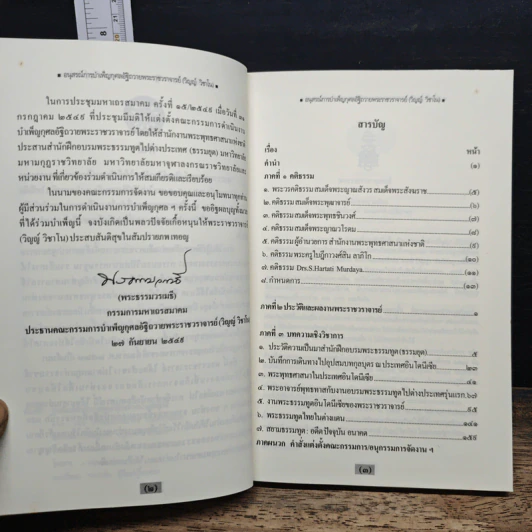 8
● อนุสรณ์การบำเพ็ญกุศลอัฐิถวายพระราชวราจารย์ (วิญญ์ วิชาโน) ●
ในการประชุมมหาเถรสมาคม ครั้งที่ ๑๕/๒๕๔๙ เมื่อวันที่
กรกฎาคม ๒๕๔๙ ที่ประชุมมีมติให้แต่งตั้งคณะกรรมการดำเนินงาน
บำเพ็ญกุศลอัฐิถวายพระราชวราจารย์โดยให้สำนักงานพระพุทธศาสนาแห่งชาติ
ประสานสำนักฝึกอบรมพระธรรมทูตไปต่างประเทศ (ธรรมยุต) มหาวิทยาลัย
มหามกุฏราชวิทยาลัย มหาวิทยาลัยมหาจุฬาลงกรณราชวิทยาลัย
หน่วยงานที่เกี่ยวข้องร่วมดำเนินการให้สมเกียรติและเรียบร้อย
ในนามของคณะกรรมการจัดงาน ขอขอบคุณและอนุโมทนาทุกท่าน
ผู้มีส่วนร่วมในการดำเนินงานการบำเพ็ญกุศล ฯ ครั้งนี้ ขออิฐผลบุญ
ที่ได้ร่วมบำเพ็ญนี้ จงบังเกิดเป็นพลวปัจจัยเกื้อหนุนให้พระราชวราจารย์
(วิญญ์ วิชาโน) ประสบสันติสุขในสัมปรายภพ เทอญ
(พระธรรมวรเมธี)
กรรมการมหาเถรสมาคม
ประธานคณะกรรมการบำเพ็ญกุศลอัฐิถวายพระราชวราจารย์ (วิญญ์ วิชาโน)
๒๗ กันยายน ๒๕๔๙
(๒)
● อนุสรณ์การบำเพ็ญกุศลอัฐิถวายพระราชวราจารย์ (วิญญ์ วิชาโน) ●
สารบัญ
เรื่อง หน้า
คำนำ (๑)
ภาคที่ ๑ คติธรรม
๑. พระวรคติธรรม สมเด็จพระญาณสังวร สมเด็จพระสังฆราช (๕)
๒. คติธรรม สมเด็จพระพุฒาจารย์ (๖)
๓. คติธรรม สมเด็จพระพุทธชินวงศ์ (๗)
๔. คติธรรม สมเด็จพระญาณวโรดม (๘)
๕. คติธรรม ผู้อำนวยการ สำนักงานพระพุทธศาสนาแห่งชาติ (๙)
๖. คติธรรม พระครูใบฎีกาวงศ์สิน ลาภิโก (๑๐)
๗. คติธรรม Drs.S.Hartati Murdaya. (๑๑)
๘. กำหนดการ (๑๓)
ภาคที่ ๒ ประวัติและผลงานพระราชวราจารย์ ๑
ภาคที่ ๓ บทความเชิงวิชาการ
๑. ประวัติความเป็นมาสำนักฝึกอบรมพระธรรมทูต (ธรรมยุต) ๕
๒. บันทึกการเดินทางไปอุปสมบทกุลบุตร ณ ประเทศอินโดนีเซีย ๒๓
๓. พระพุทธศาสนาในประเทศอินโดนีเซีย ๔๑
๔. พระอาจารย์พุทธทาสกับงานอบรมพระธรรมทูตไปต่างประเทศรุ่นแรก ๖๗
๕. งานพระธรรมทูตอินโดนีเซียของพระราชวราจารย์ ๙๕
๖. พระธรรมทูตไทยในต่างแดน ๑๔๑
๗. สยามธรรมทูต : อดีต ปัจจุบัน อนาคต ๑๕๙
ภาคผนวก คำสั่งแต่งตั้งคณะกรรมการ/อนุกรรมการจัดงาน ฯ
(๓)